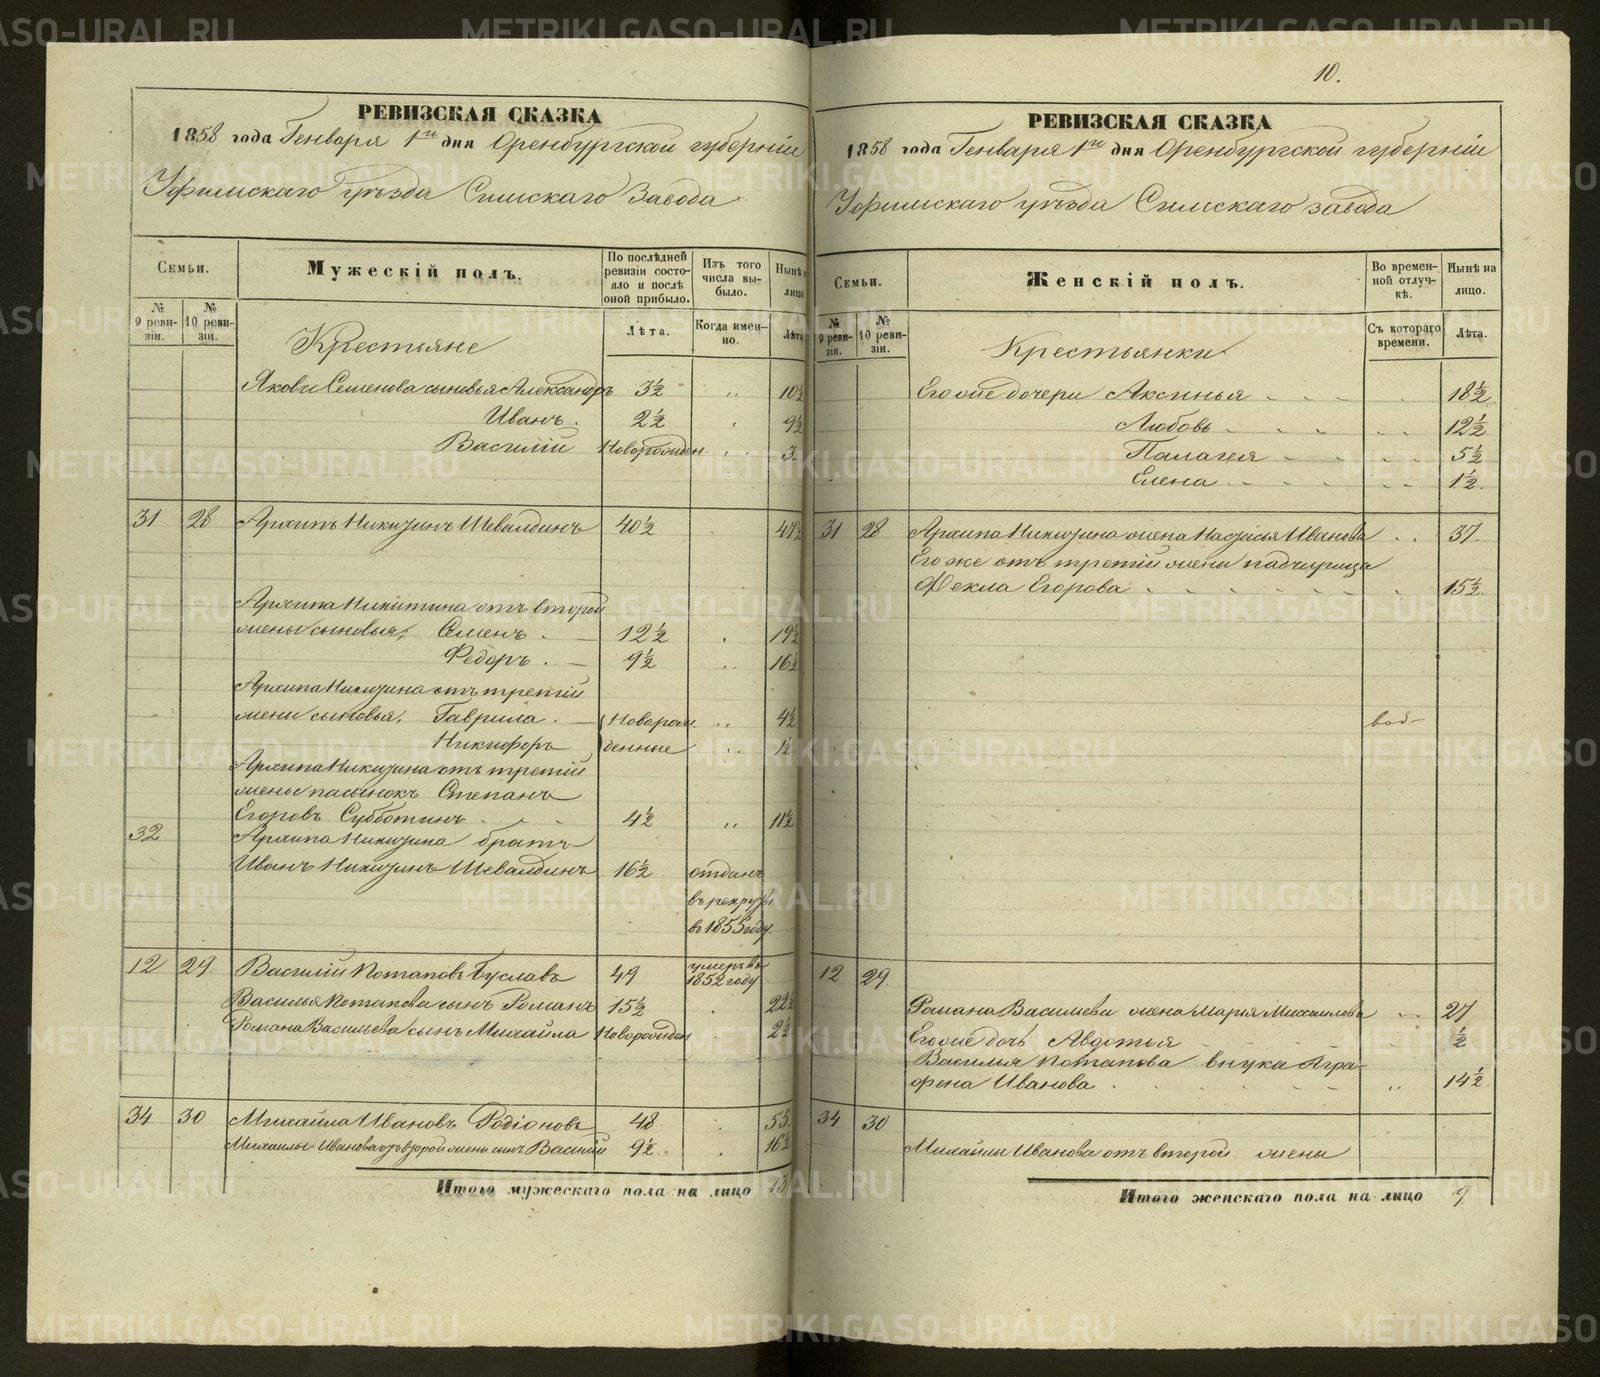 10.
РЕВИЗСКАЯ СКАЗКА
1858 года Генваря 1го дня Оренбургской губернiи
Уфимскаго уѣзда Симскаго Завода
Семьи.
Мужескiй полъ.
По послѣдней ревизiи состояло и послѣ оной прибыло.
Изъ того числа выбыло.
Нынѣ на лицо.
№ 9 ревизiи.
№ 10 ревизiи.
Крестьяне
Лѣта.
Когда именно.
Лѣта.
Якова Семенова сыновья Александръ 3½ 〃 10½
Иванъ. 2½ 9½
Василiй Новорожден. 3.
31 28 Архипъ Никитинъ Шевалдинъ 40½ 47½
Архипа Никитина отъ второй
жены сыновья, Семенъ. 12½ 19½
Федоръ. 9½ 16½
Архипа Никитина отъ третiй
жены сыновья, Гаврила. Новорож 4½
Никифоръ денные 1½
Архипа Никитина отъ третiй
жены пасынокъ Степанъ
Егоровъ Субботинъ 4½ 〃 11½
32 Архипа Никитина братъ
Иванъ Никитинъ Шевалдинъ 16½ отданъ
въ рекруты
въ 1855 году.
12 29. Василiй Потаповъ Буславъ 49 умеръ въ 1852 году
Василья Потапова сынъ Романъ 15½ 22½
Романа Васильева сынъ Михайла Новорожден 2½
34 30 Михайла Ивановъ Родiоновъ 48 55.
Михайлы Иванова отъ второй жены сынъ Василiй 9½ 16½
Итого мужескаго пола на лицо 13
РЕВИЗСКАЯ СКАЗКА
1858 года Генваря 1го дня Оренбургской губернiи
Уфимскаго уѣзда Симскаго завода
Семьи.
Женскiй полъ.
Во временной отлучкѣ.
Нынѣ на лицо.
№ 9 ревизiи.
№ 10 ревизiи.
Крестьянки.
Съ котораго времени.
Лѣта.
Его же дочери Аксинья 18½
Любовь 12½
Палагея 5½
Елена 1½.
31 28 Архипа Никитина жена Настасья Иванова 37.
Его же отъ третiй жены падчирица
Фекла Егорова 15½.
12 29.
Романа Васильева жена Марья Михаилова 27
Его же дочь Авдотья ½
Василья Потапова внука Агра-
фена Иванова 〃 14½.
34 30
Михайлы Иванова отъ второй жены
Итого женскаго пола на лицо 9.
METRIKI.GASO-URAL.RU